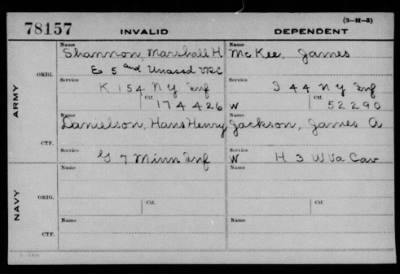 (3-M-3)
78157 INVALID DEPENDENT
Name Name
Shannon, Marshall H McKee, James
Co 5 2nd Unassd VRC
ORIG. Service Service
K 154 N Y Inf I 44 N Y Inf
Ctf. Ctf.
174426 W 52290
ARMY
Name Name
Danielson, Hans Henry Jackson, James A
CTF. Service Service
G 7 Minn Inf W H 3 W Va Cav
Name Name
NAVY
ORIG. Service Ctf. Service Ctf.
Name Name
CTF.